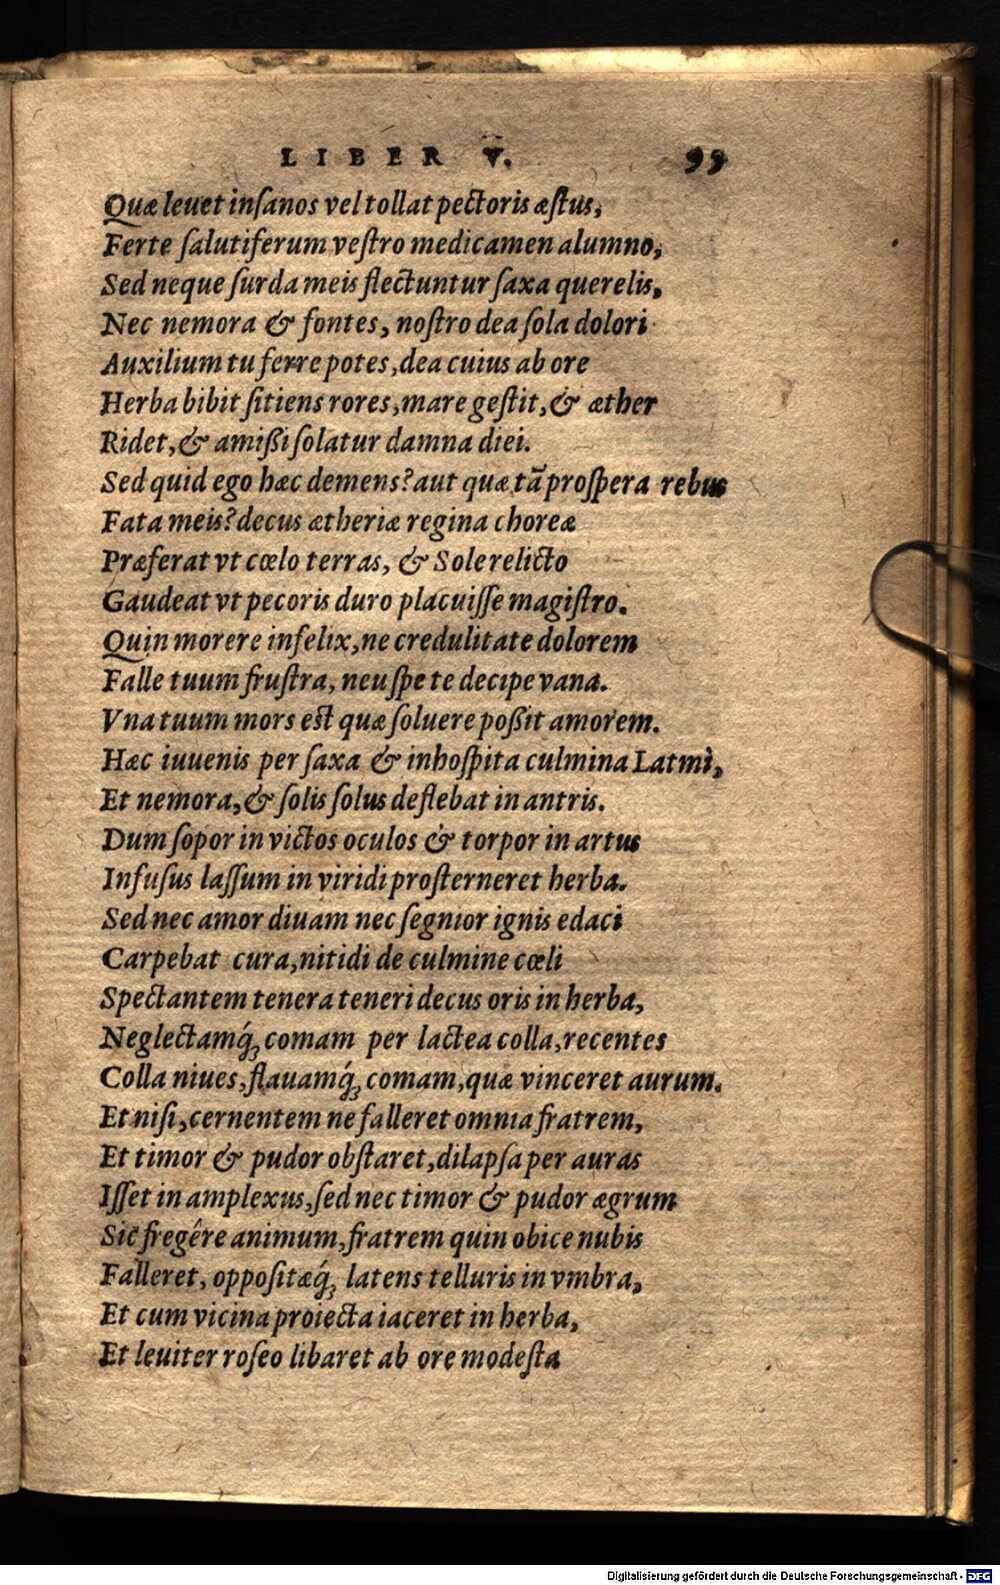 LIBER V. 99
Quæ leuet insanos vel tollat pectoris æstus,
Ferte salutiferum vestro medicamen alumno,
Sed neque surda meis flectuntur saxa querelis,
Nec nemora & fontes, nostro dea sola dolori
Auxilium tu ferre potes, dea cuius ab ore
Herba bibit sitiens rores, mare gestit, & æther
Ridet, & amißi solatur damna diei.
Sed quid ego hæc demens? aut quæ tã prospera rebus
Fata meis? decus ætheriæ regina choreæ
Præferat vt cœlo terras, & Sole relicto
Gaudeat vt pecoris duro placuisse magistro.
Quin morere infelix, ne credulitate dolorem
Falle tuum frustra, neu spe te decipe vana.
Vna tuum mors est quæ soluere poßit amorem.
Hæc iuuenis per saxa & inhospita culmina Latmi,
Et nemora, & solis solus deflebat in antris.
Dum sopor in victos oculos & torpor in artus
Infusus lassum in viridi prosterneret herba.
Sed nec amor diuam nec segnior ignis edaci
Carpebat cura, nitidi de culmine cœli
Spectantem tenera teneri decus oris in herba,
Neglectamq́; comam per lactea colla, recentes
Colla niues, flauamq́; comam, quæ vinceret aurum.
Et nisi, cernentem ne falleret omnia fratrem,
Et timor & pudor obstaret, dilapsa per auras
Isset in amplexus, sed nec timor & pudor ægrum
Sic fregêre animum, fratrem quin obice nubis
Falleret, oppositæq́; latens telluris in vmbra,
Et cum vicina proiecta iaceret in herba,
Et leuiter roseo libaret ab ore modesta
Digitalisierung gefördert durch die Deutsche Forschungsgemeinschaft - DFG